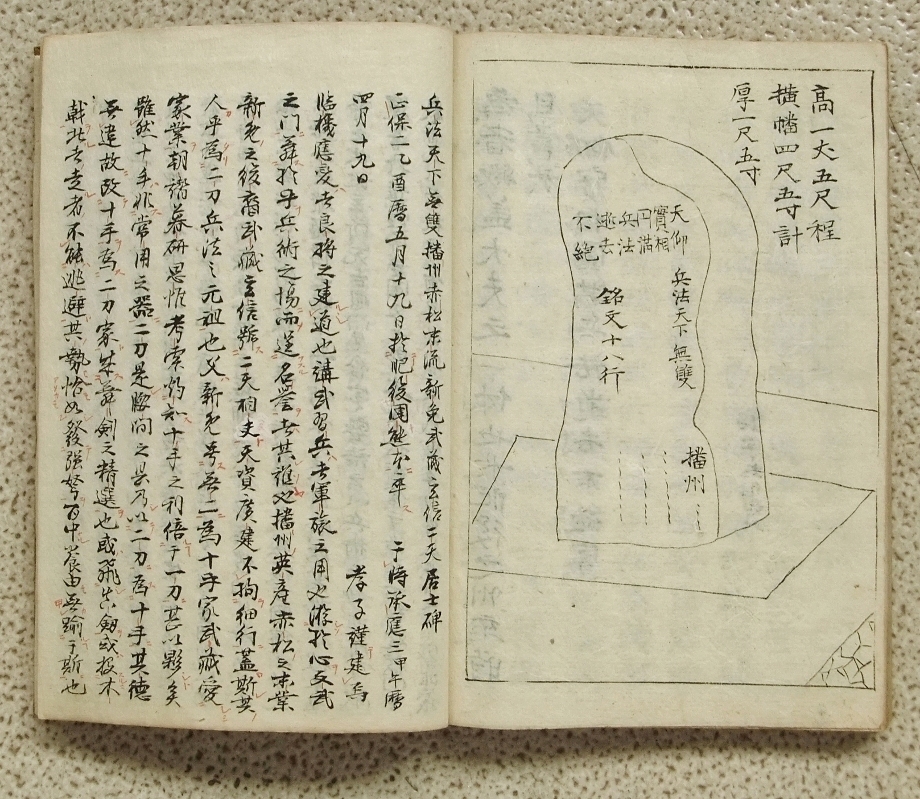 高一丈五尺程
横幡四尺五寸計
厚一尺五寸
天仰
實相
円満
兵法
逃去
不絶
兵法天下無雙
播州
銘文十八行
兵法天下無雙播州赤松末流新免武蔵玄信二天居士碑
正保乙酉暦五月十九日於肥後国熊本卒 于時承應三甲午暦
四月十九日 孝子謹建焉
臨機應變者良将之達道也講武習兵者軍旅之用也游於心文武
之門舞於手兵術之場而逞名誉者其誰也播州英産赤松之末葉
新免之後裔武蔵玄信號二天想夫天資廣達不拘細行蓋斯其
人乎為二刀兵法之元祖也父新免号無二為十手家武蔵受
家業朝鑚暮研思惟考索灼知十手之利倍于一刀甚以夥矣
雖然十手非常用之器二刀是腰間之具乃以二刀為十手其徳
無違故改十手為二刀家誠舞劍之精選也或飛真劔或投木
戟北者走者不能逃避其勢恰如發強弩百中養由無踰于斯也